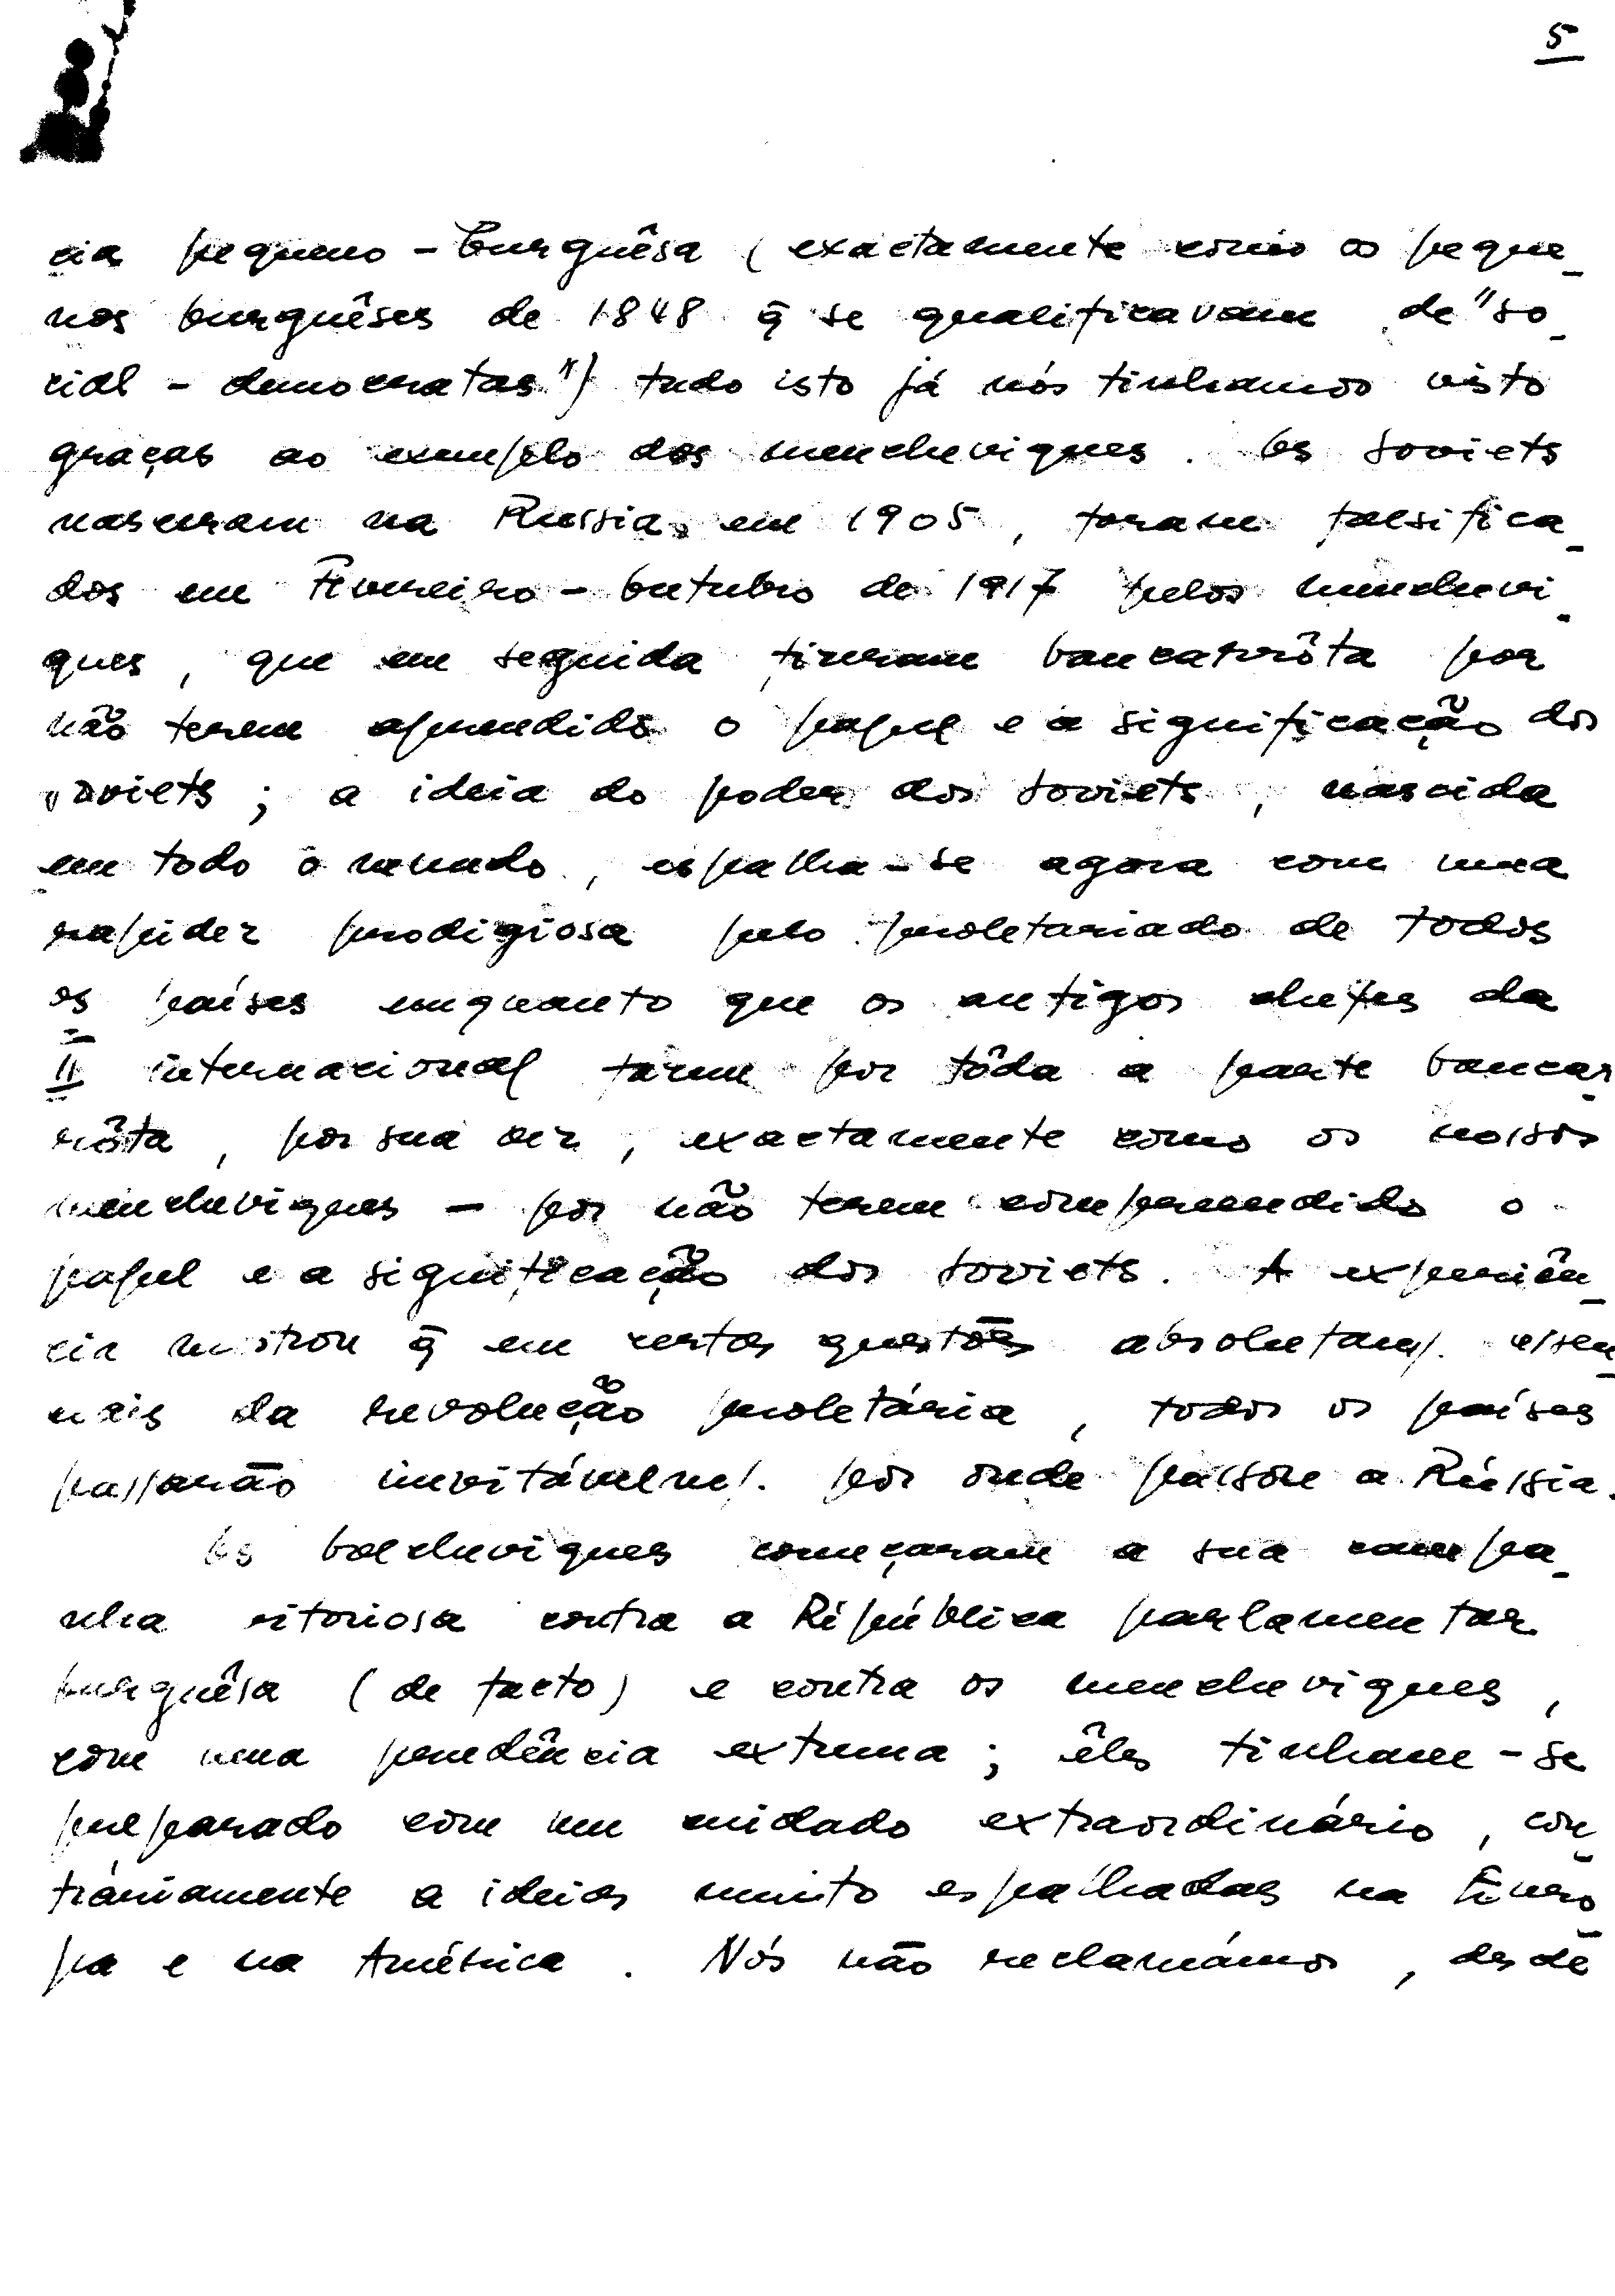 5
cia pequeno-burguêsa (exactamente como os peque_
nos burguêses de 1848 q̃ se qualificavam de "so_
cial-democratas") tudo isto já nós tinhamos visto
graças ao exemplo dos mencheviques. Os soviets
nasceram na Russia, em 1905, foram falsifica_
dos em Fevereiro-Outubro de 1917 pelos menchevi_
ques, que em seguida fizeram bancarrôta por
não terem aprendido o papel e a significação dos
soviets; a ideia do poder dos soviets, nascida
em todo o mundo, espalha-se agora com uma
rapidez prodigiosa pelo proletariado de todos
os países enquanto que os antigos chefes da
II internacional fazem por tôda a parte bancar_
rôta, por sua vez, exactamente como os nossos
mencheviques - por não terem compreendido o
papel e a significação dos soviets. A experiên_
cia mostrou q̃ em certas questões absolutam/. essen_
ciais da revolução proletária, todos os países
passarão inevitávelm/. por onde passou a Rússia.
Os bolcheviques começaram a sua campa_
nha vitoriosa contra a República parlamentar
burguêsa (de facto) e contra os mencheviques,
com uma prudência extrema; êles tinham-se
preparado com um cuidado extraordinário, con_
tráriamente a ideias muito espalhadas na Euro_
pa e na América. Nós não reclamámos, desde